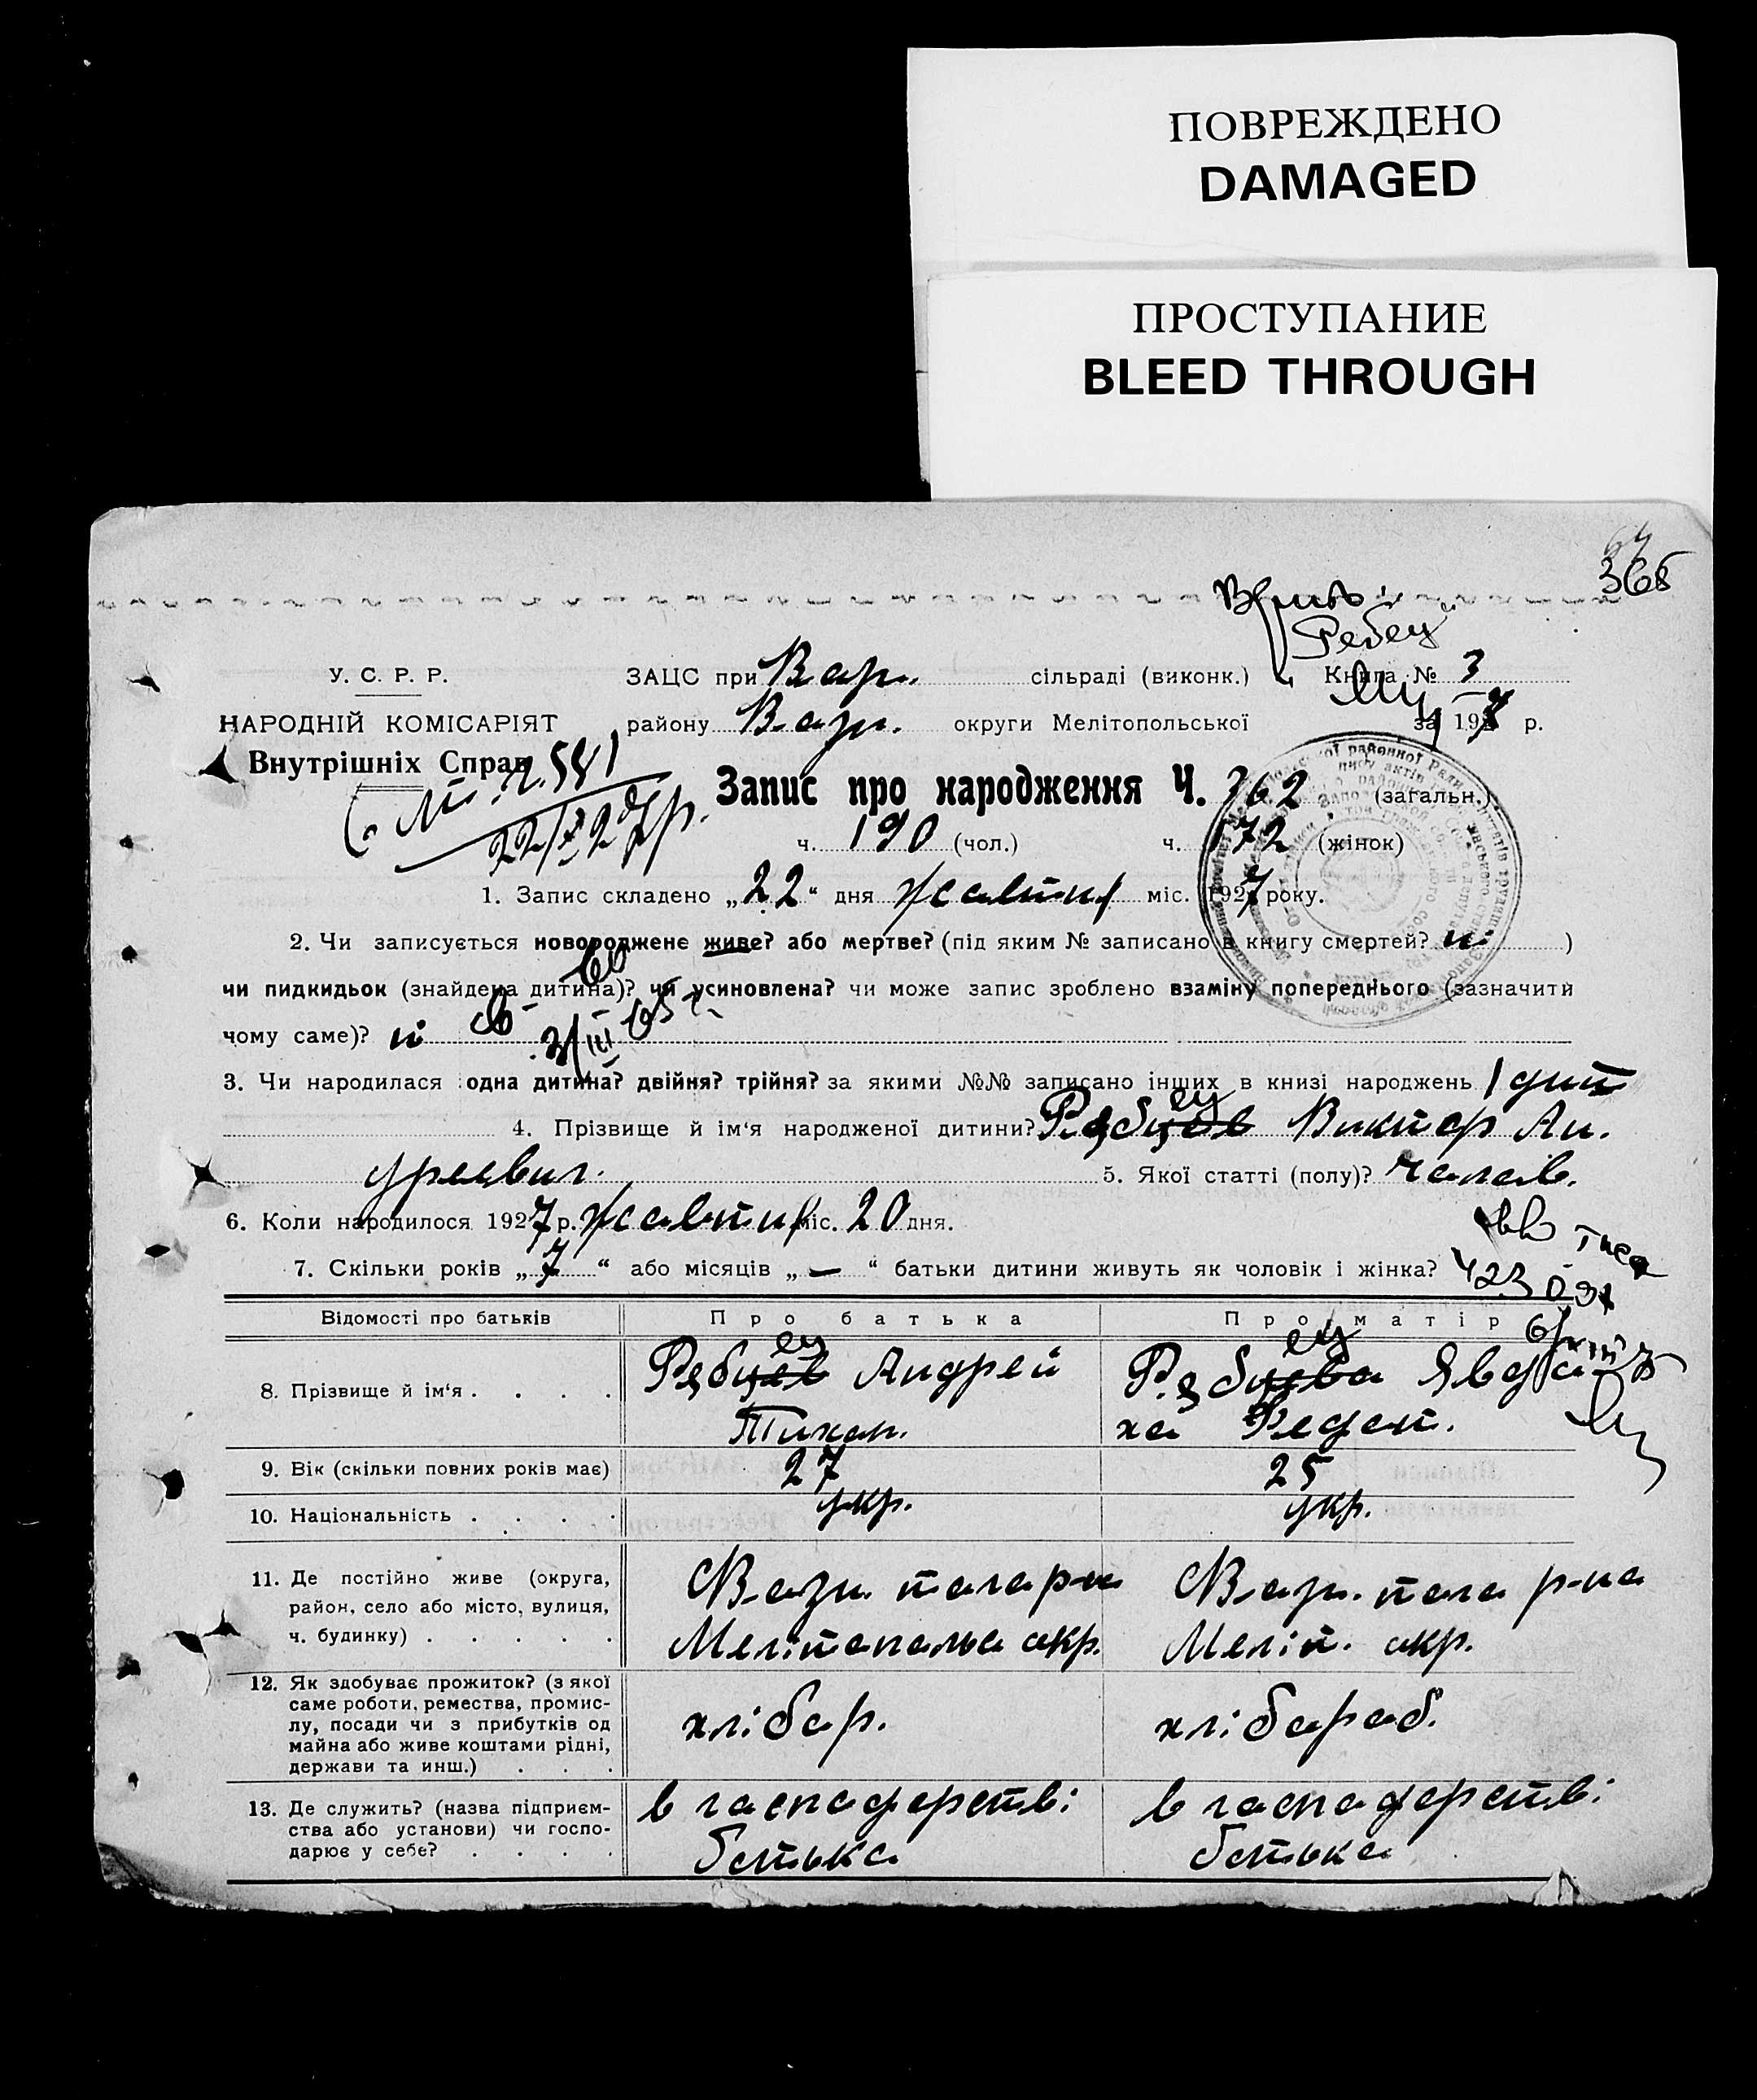 ПОВРЕЖДЕНО
DAMAGED
ПРОСТУПАНИЕ
BLEED THROUGH
366
У. С. Р. Р. ЗАЦС при сільраді (виконк.) Книга № 3
НАРОДНІЙ КОМІСАРІЯТ району округи Мелітопольської за 1927 р.
Внутрішніх Справ
Запис про народження Ч. 362 (загальн.)
ч. 190 (чол.) ч. 172 (жінок)
1. Запис складено „22“ дня жовтня міс. 1927 року.
2. Чи записується новороджене живе? або мертве? (під яким № записано в книгу смертей? ні )
чи пидкидьок (знайдена дитина)? чи усиновлена? чи може запис зроблено взаміну попереднього (зазначити
чому саме)? ні
3. Чи народилася одна дитина? двійня? трійня? за якими №№ записано інших в книзі народжень 1 дит
4. Прізвище й ім‘я народженої дитини? Рябцев Виктор Ан.
дреевич. 5. Якої статті (полу)? чолов.
6. Коли народилося 1927 р. жовтня міс. 20 дня.
7. Скільки років „7“ або місяців „—“ батьки дитини живуть як чоловік і жінка?
Відомості про батьків Про батька Про матір
8. Прізвище й ім‘я . . . . Рябцев Андрей Рябцева Явдо
Тихон. ха Федот.
9. Вік (скільки повних років має) 27 25
10. Національність . . . . укр. укр.
11. Де постійно живе (округа,
район, село або місто, вулиця,
ч. будинку) . . . . . Мелітопольс окр. Меліт. окр.
12. Як здобуває прожиток? (з якої
саме роботи, ремества, промис-
лу, посади чи з прибутків од
майна або живе коштами рідні,
держави та инш.) . . . хлібор. хлібороб.
13. Де служить? (назва підприєм-
ства або установи) чи госпо-
дарює у себе? . . . . в господарстві в господарстві
батька батька